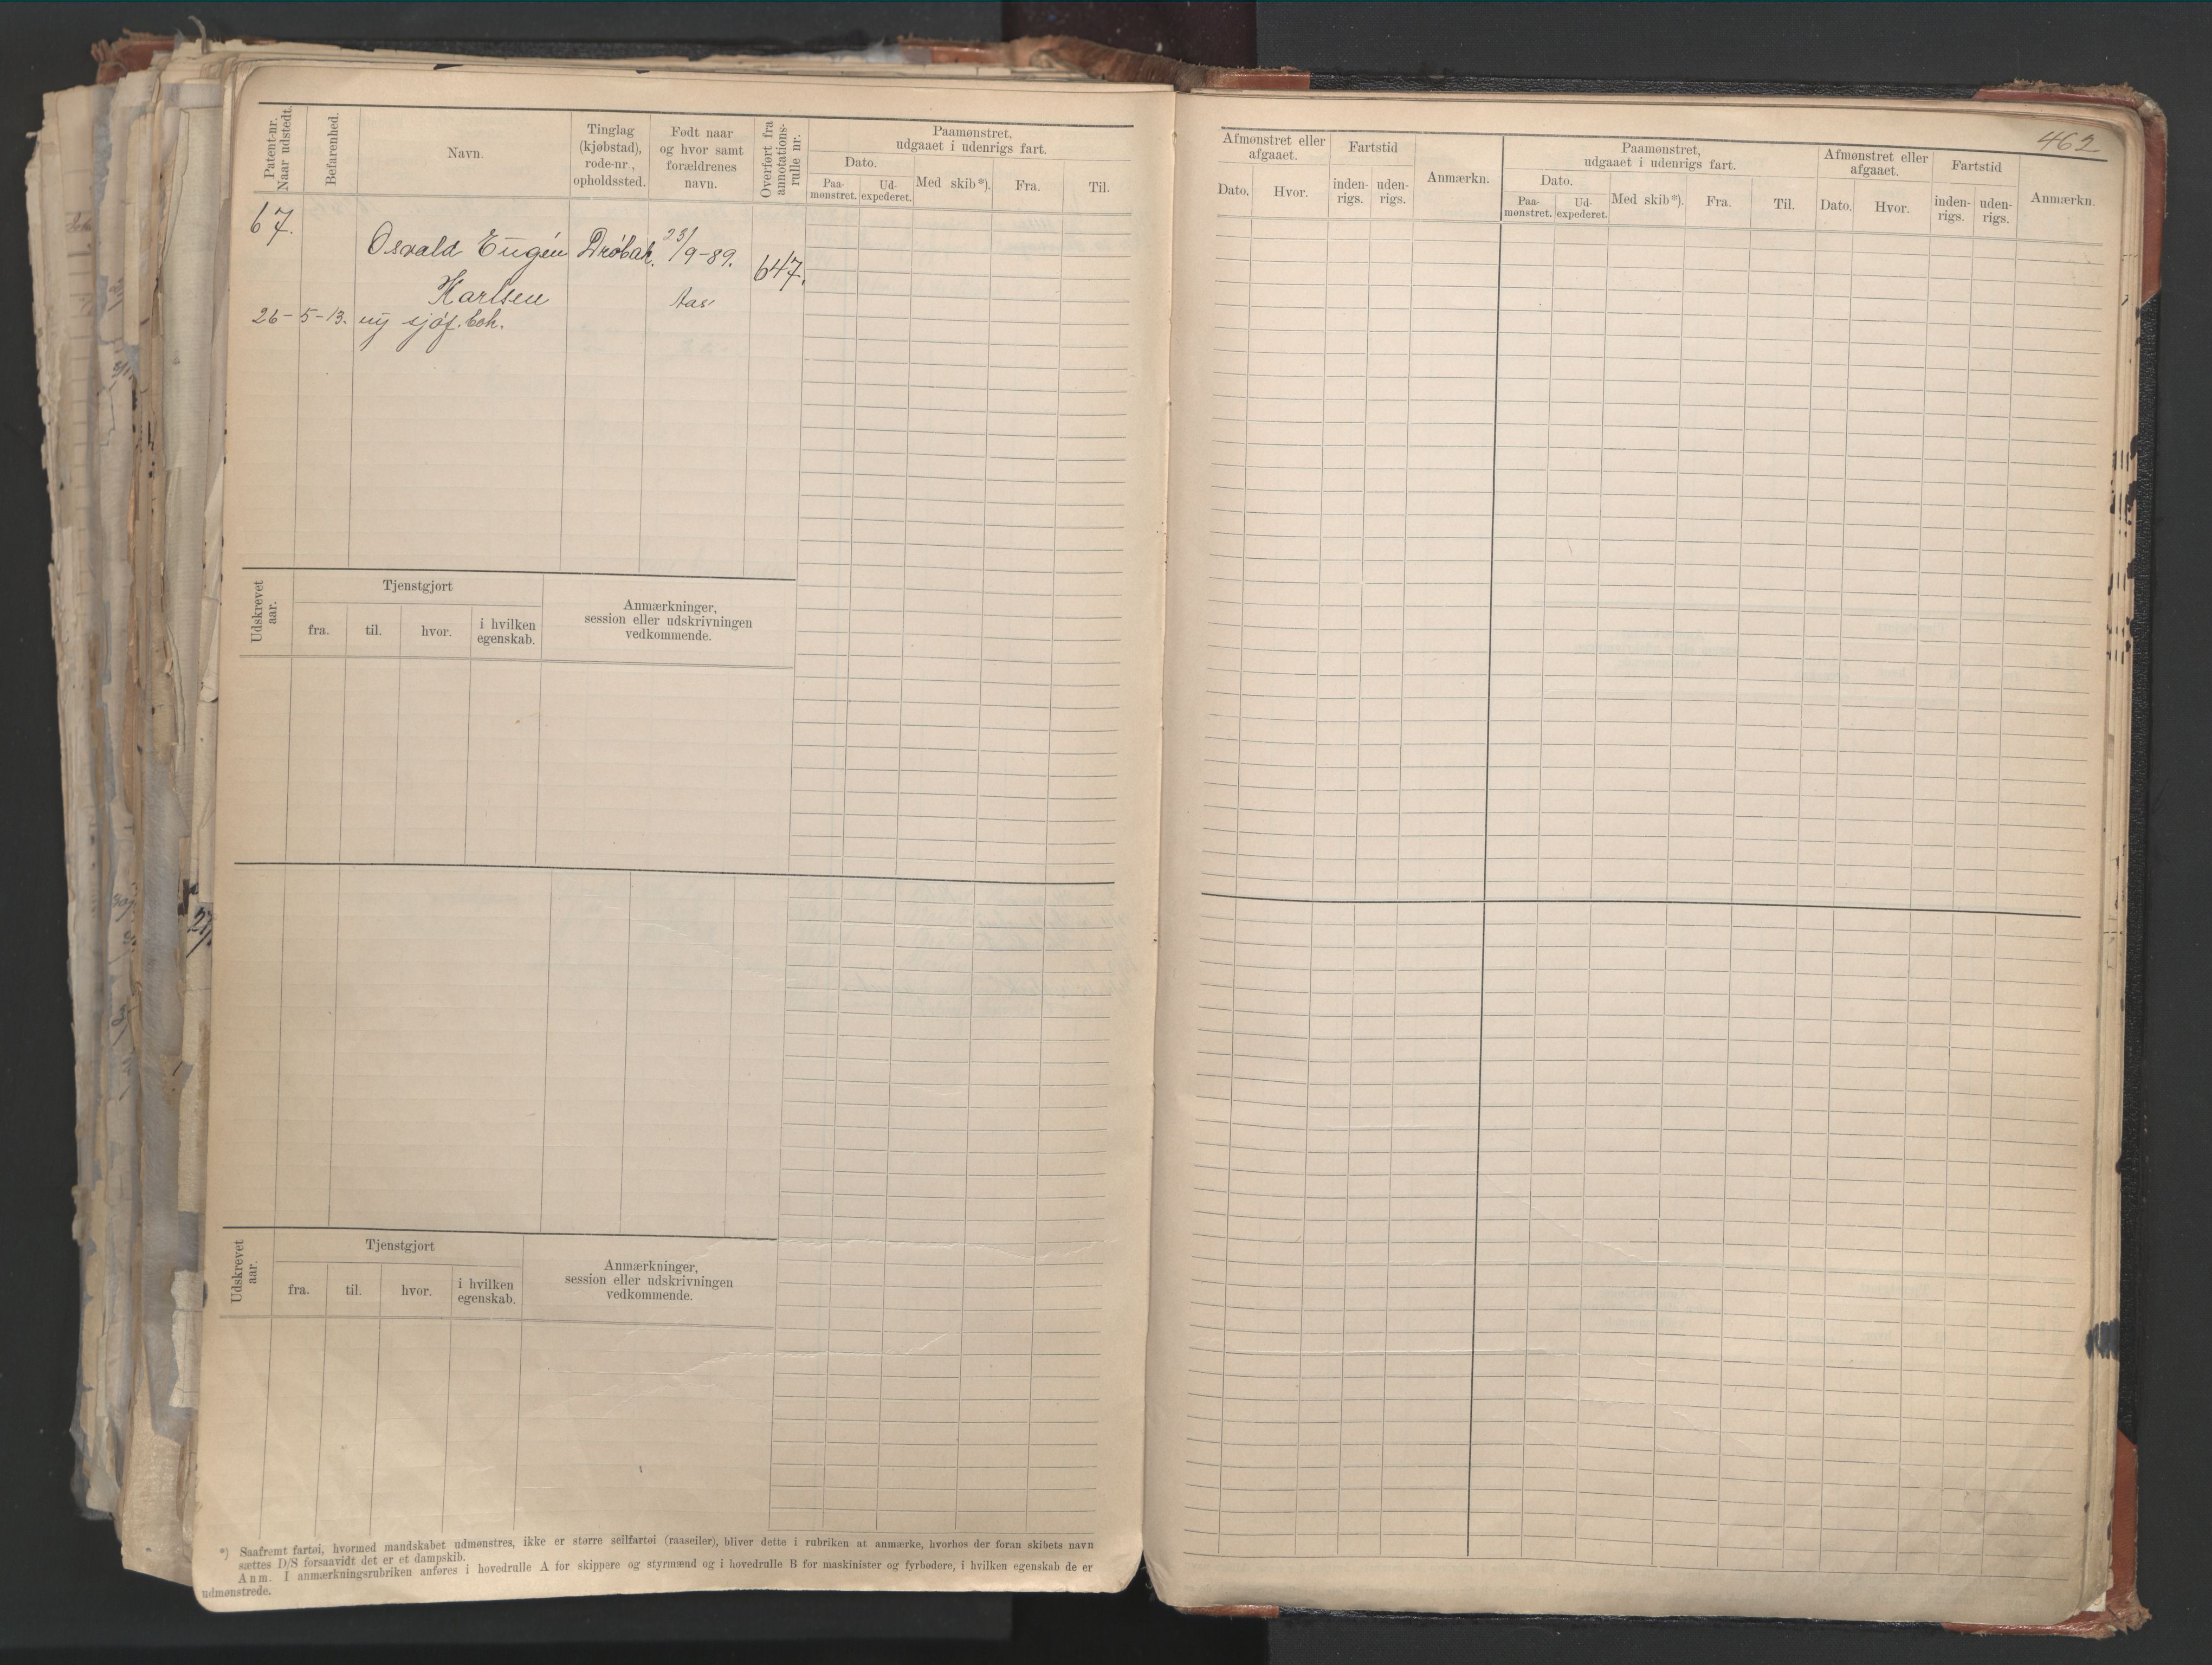 Patent-nr.
Naar udstedt.
Befarenhed.
Navn.
Tinglag
(kjøbstad),
rode-nr.,
opholdssted.
Født naar
og hvor samt
forældrenes
navn.
Overført fra
annotations-
rulle nr.
Paamønstret,
udgaaet i udenrigs fart.
Dato.
Paa-
mønstret.
Ud-
expederet.
Med skib*).
Fra.
Til.
67.
Osvald Eugén
Karlsen
Drøbak.
23/9-89.
Aas
647.
26-5-13. ny sjøf. bok.
Udskrevet
aar.
Tjenstgjort
fra.
til.
hvor.
i hvilken
egenskab.
Anmærkninger,
session eller udskrivningen
vedkommende.
Udskrevet
aar.
Tjenstgjort
fra.
til.
hvor.
i hvilken
egenskab.
Anmærkninger,
session eller udskrivningen
vedkommende.
*) Saafremt fartøi, hvormed mandskabet udmønstres, ikke er større seilfartøi (raaseiler), bliver dette i rubriken at anmærke, hvorhos der foran skibets navn
sættes D/S forsaavidt det er et dampskib.
Anm. I anmærkningsrubriken anføres i hovedrulle A for skippere og styrmænd og i hovedrulle B for maskinister og fyrbødere, i hvilken egenskab de er
udmønstrede.
462
Afmønstret eller
afgaaet.
Dato.
Hvor.
Fartstid
inden-
rigs.
uden-
rigs.
Anmærkn.
Paamønstret,
udgaaet i udenrigs fart.
Dato.
Paa-
mønstret.
Ud-
expederet.
Med skib*).
Fra.
Til.
Afmønstret eller
afgaaet.
Dato.
Hvor.
Fartstid
inden-
rigs.
uden-
rigs.
Anmærkn.